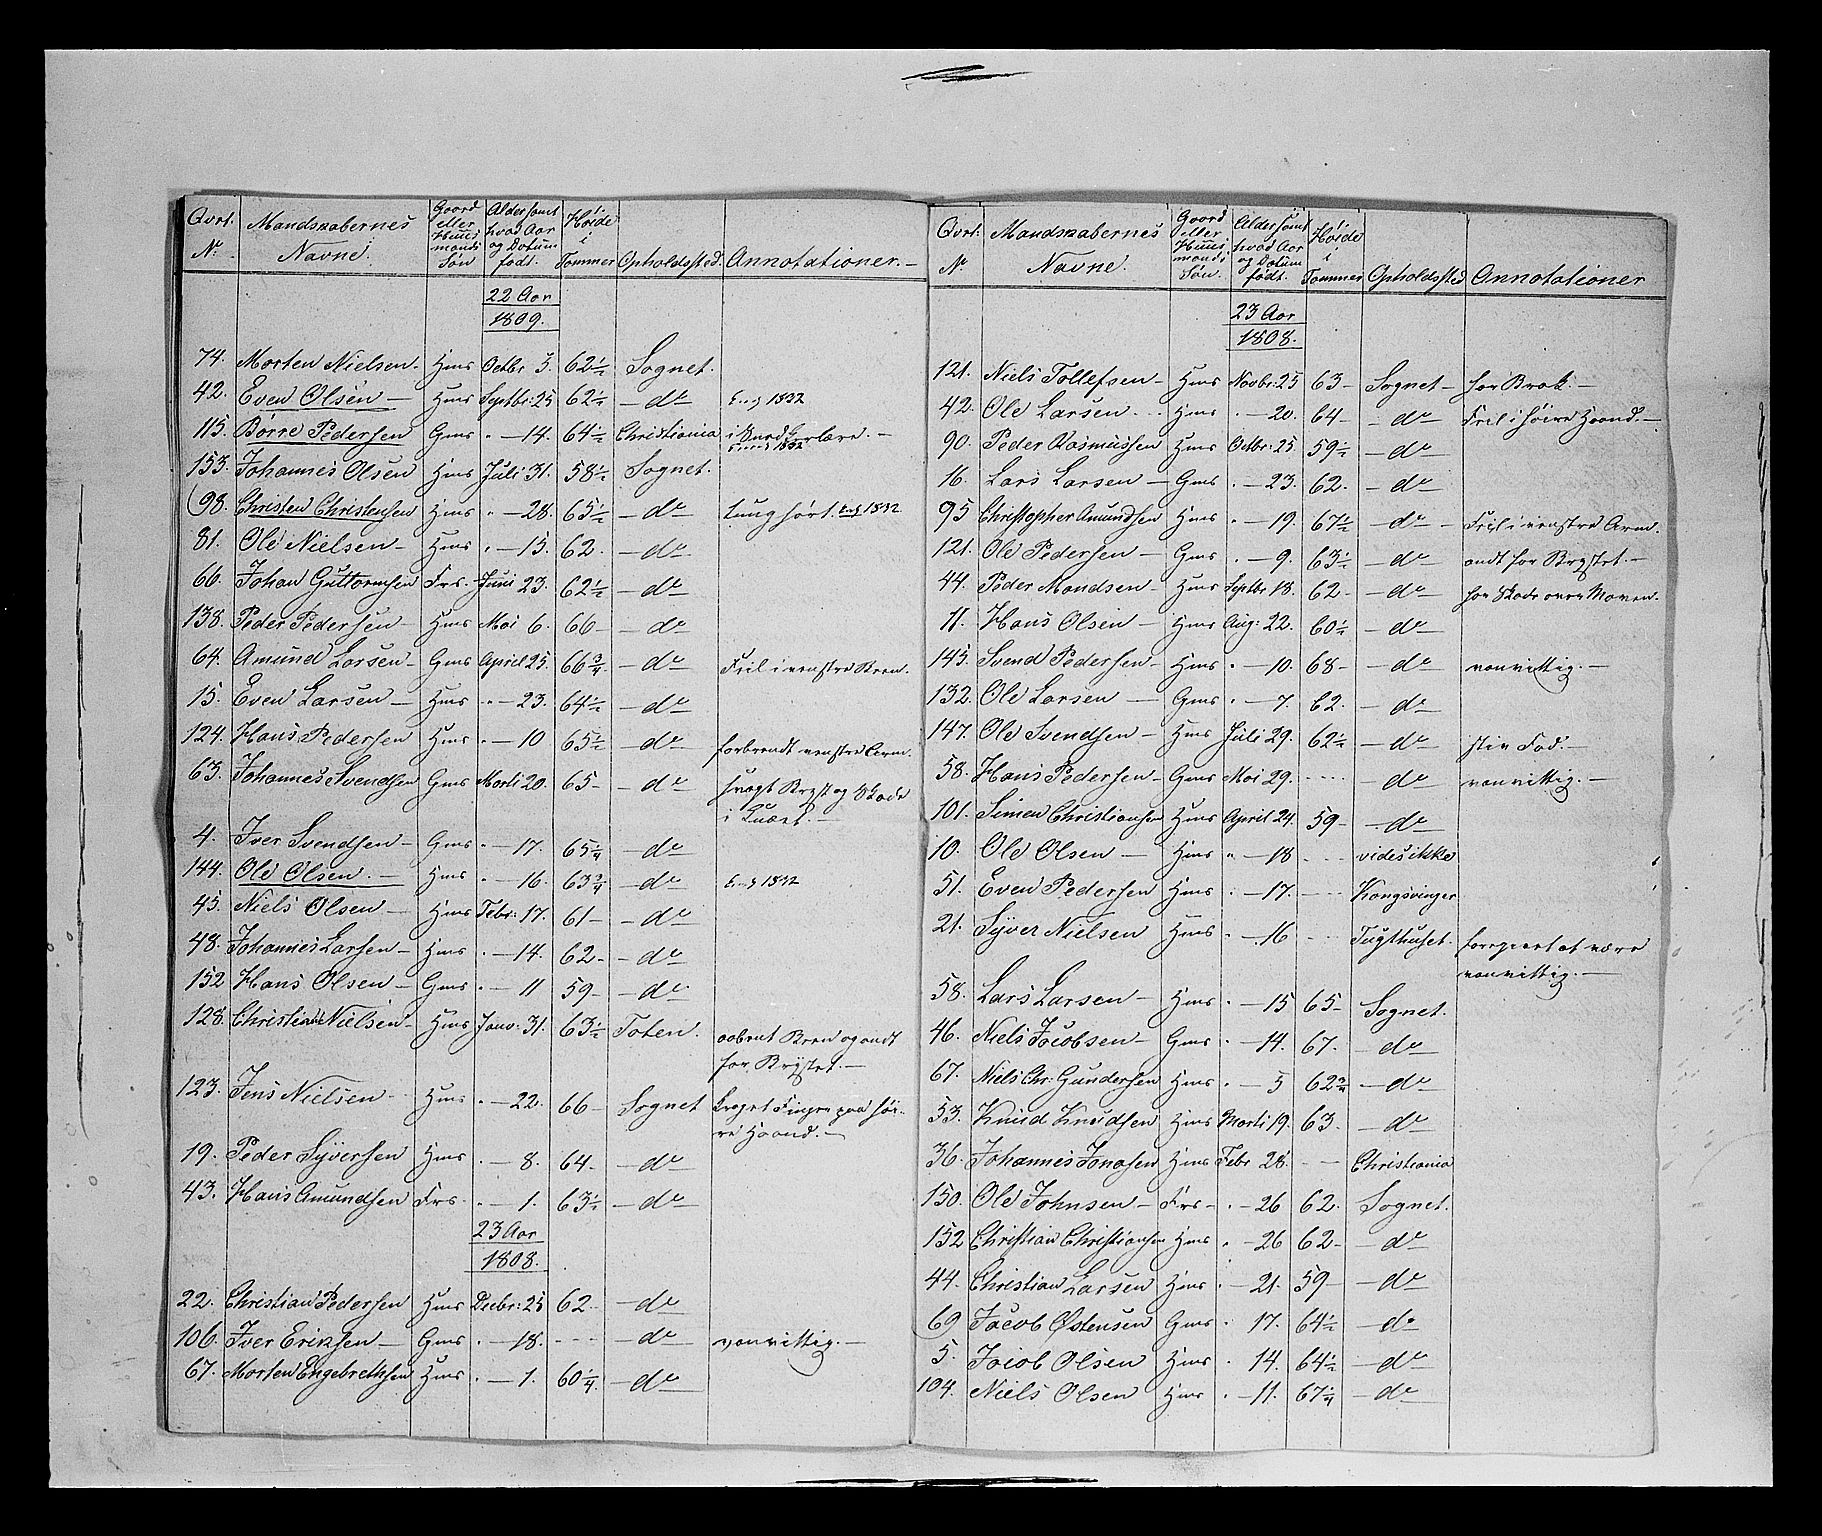 Qvrt. Nr. Mandskabernes Navne. Gaard eller Huus mands Søn Alder samt hvad Aar og Datum født. Høide i Tommer Opholdssted. Annotationer.
22 Aar
1809.
74. Morten Nielsen Hms Octbr 3. 62½ Sognet.
42. Even Olsen Hms Septbr 25 62½ – do 1832
115. Børre Pedersen Gms " – 14. 64½ Christiania i 1832
153. Johannes Olsen Hms Juli 31. 58½ Sognet.
98. Christen Christensen Hms " – 28. 65½ – do tunghørt. 1832
81. Ole Nielsen – Hms " – 15. 62. – do
66. Johan Guttormsen Frs. Juni 23. 62½ – do
138. Peder Pedersen – Hms Mai 6. 66 – – do
64. Amund Larsen – Gms April 25. 66¾ – do Feil i venstre Been.
15. Even Larsen – Hms " – 23. 64½ – do
124. Hans Pedersen Hms " – 10 65½ – do forbrendt venstre Arm.
63. Johannes Svendsen Gms Marti 20. 65 – – do svagt Bryst og Skade
i
4. Iver Svendsen – Gms " – 17. 65¼ – do
144. Ole Olsen. – Hms " – 16. 63¾ – do 1832
45. Niels Olsen – Hms Febr: 17. 61 – – do
48. Johannes Larsen – Hms " – 14. 62 – – do
152 Hans Olsen – Gms " – 11 59 – – do
128. Christian Nielsen – Hms Janv: 31. 63½ Toten. aabent Been og ondt
for Brystet. –
123. Jens Nielsen – Hms " – 22. 66 – Sognet kroget Finger paa høi-
re Haand. –
19. Peder Syversen Hms " – 8. 64 – – do
43. Hans Amundsen Frs. " – 1. 63½ – do
23 Aar
1808.
22. Christian Pedersen Hms Decbr: 25 62. – do
106. Iver Eriksen – Gms " – 18. - - - – do vanvittig. –
67. Morten Engebrethsen Hms " – 1. 60¼ – do
Qvrt. Nr Mandskabernes Navne. Gaard eller Huus mands Søn. Alder samt hvad Aar og Datum født. Høide i Tommer Opholdssted Annotationer
23 Aar
1808.
121. Niels Tollefsen – Hms Novbr: 25 63 – Sognet – har Brok. –
42. Ole Larsen Hms " – 20. 64 – – do Feil i høire Haand. –
90. Peder Rasmussen Hms Octbr: 25. 59½ – do
16. Lars Larsen – Gms " – 23. 62. – do
95 Christopher Amundsen Hms " – 19. 67½ – do – Feil i venstre Arm.
121. Ole Pedersen – Gms " – 9. 63½ – do ondt for Brystet. –
44. Peder Mandsen – Hms Septbr 18. 62 – – do har Skade over Maven.
11. Hans Olsen – Hms Aug: 22. 60½ – do
145. Svend Pedersen – Hms " – 10. 68 – – do vanvittig. –
132. Ole Larsen – Gms " – 7. 62. – do
147. Ole Svendsen – Hms Juli 29. 62½ – do stiv Fod. –
58. Hans Pedersen – Gms Mai 29. - - - - – do vanvittig. –
101. Simen Christiansen Hms April 24. 59 – – do
10. Ole Olsen – Hms " – 18 - - - vides ikke
51. Even Pedersen Hms " – 17. - - - Kongsvinger
21. Syver Nielsen Hms " – 16 - - - Tugthuset. foregivet at være
vanvittig. –
58. Lars Larsen – Hms " – 15 65 – Sognet.
46. Niels Jacobsen – Gms " – 14. 67. – do
67. Niels Chr: Gundersen Hms " – 5 62¾ – do
53. Knud Knudsen Hms Marti 19. 63. – do
36. Johannes Jonasen Hms Febr 28. - - Christiania
150. Ole Johnsen – Frs " – 26 62. Sognet.
152 Christian Christiansen Hms " – 26 62 – – do
44. Christian Larsen Hms " – 21. 59 – – do
69 Jacob Østensen Gms " 17. 64½ – do
5. Jacob Olsen Hms " 14. 64½ – do
104. Niels Olsen Hms " – 11. 67¼ – do